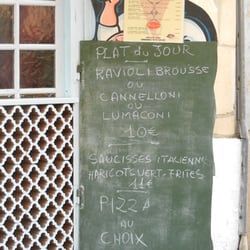 PLAT du JOUR
RAVIOLI BROUSSE
OU
CANNELLONI
OU
LUMACONI
10€
SAUCISSES ITALIENNES
HARICOTS VERT + FRITES
11€
PIZZA
AU
CHOIX